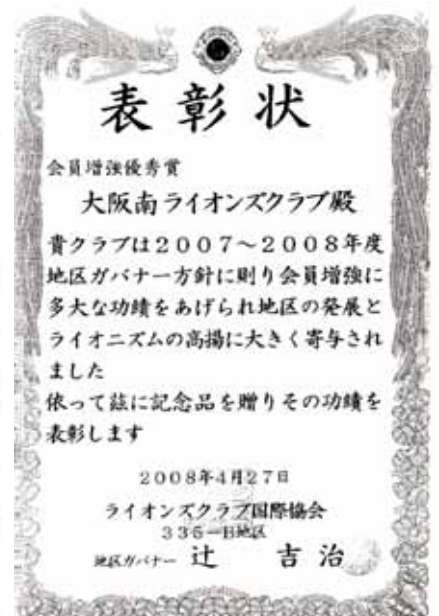 表彰状
会員増強優秀賞
大阪南ライオンズクラブ殿
貴クラブは2007~2008年度
地区ガバナー方針に則り会員増強に
多大な功績をあげられ地区の発展と
ライオニズムの高揚に大きく寄与され
ました
依って茲に記念品を贈りその功績を
表彰します
2008年4月27日
ライオンズクラブ国際協会
335-B地区
地区ガバナー 辻 吉治